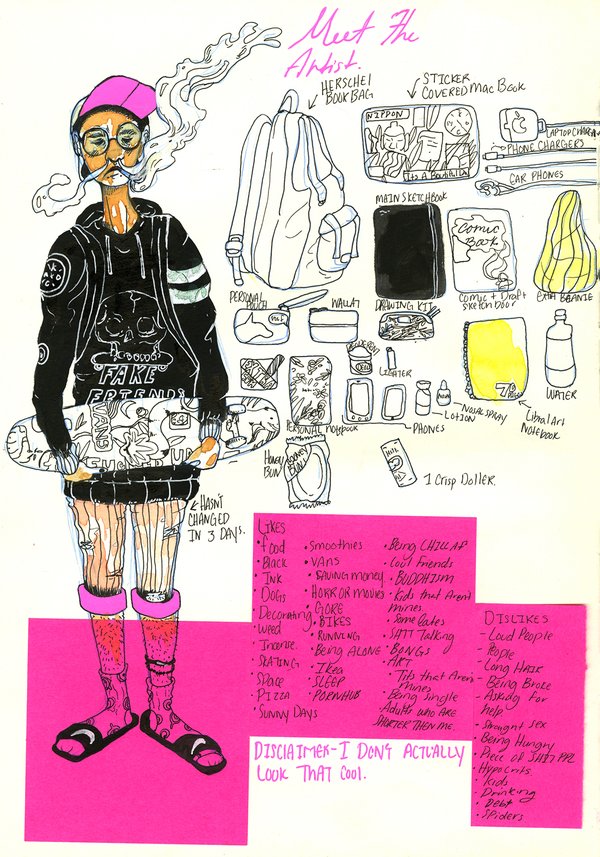 Meet The
Artist.
HERSCHEL
BOOK BAG
STICKER
COVERED Mac Book
NIPPON
ItS A
LAPTOP CHARGER
PHONE CHARGERS
CAR PHONES
MAIN SKETCHBOOK
Comic
Book
Comic + Draft
sketchbook
Extra BEANIE
PERSONAL
POUCH
WALLAT
DRAWING KIT
LIGHTER
PERSONAL Notebook
PHONES
LOTION
NASAL SPRAY
Libral Art
Notebook
WATER
HONEY
BUN
HONEY
BUN
1 Crisp Doller.
FAKE
FRIENDS
VANS
HASN'T
CHANGED
IN 3 DAYS.
LIKES
• food
• Black
• Ink
• Dogs
• Decorating
• Weed
• Incense.
• SKATING
• Space
• PIZZA
• Sunny Days
• Smoothies
• VANS
• SAVING money
• HORROR MOVIES
• GORE
• BIKES
• RUNNING
• Being ALONE
• Ikea
• SLEEP
• PORNHUB
• Being CHILL AF
• Cool Friends
• BUDDHISM
• Kids that Aren't
mines.
• Some lates
• SHIT Talking
• BONGS
• ART
• Tits that Aren't
mines
• Being Single
• Adults who ARE
SHORTER THEN ME.
DISLIKES
- Loud People
- People
- Long HAIR
- Being Broke
- Asking for
help.
• Straight sex
• Being Hungry
• Piece of SHIT PPL
• Hypocrits
• Kids
• Drinking
• Debt
• SPiders
DISCLAIMER - I DON'T ACTUALLY
LOOK THAT COOL.